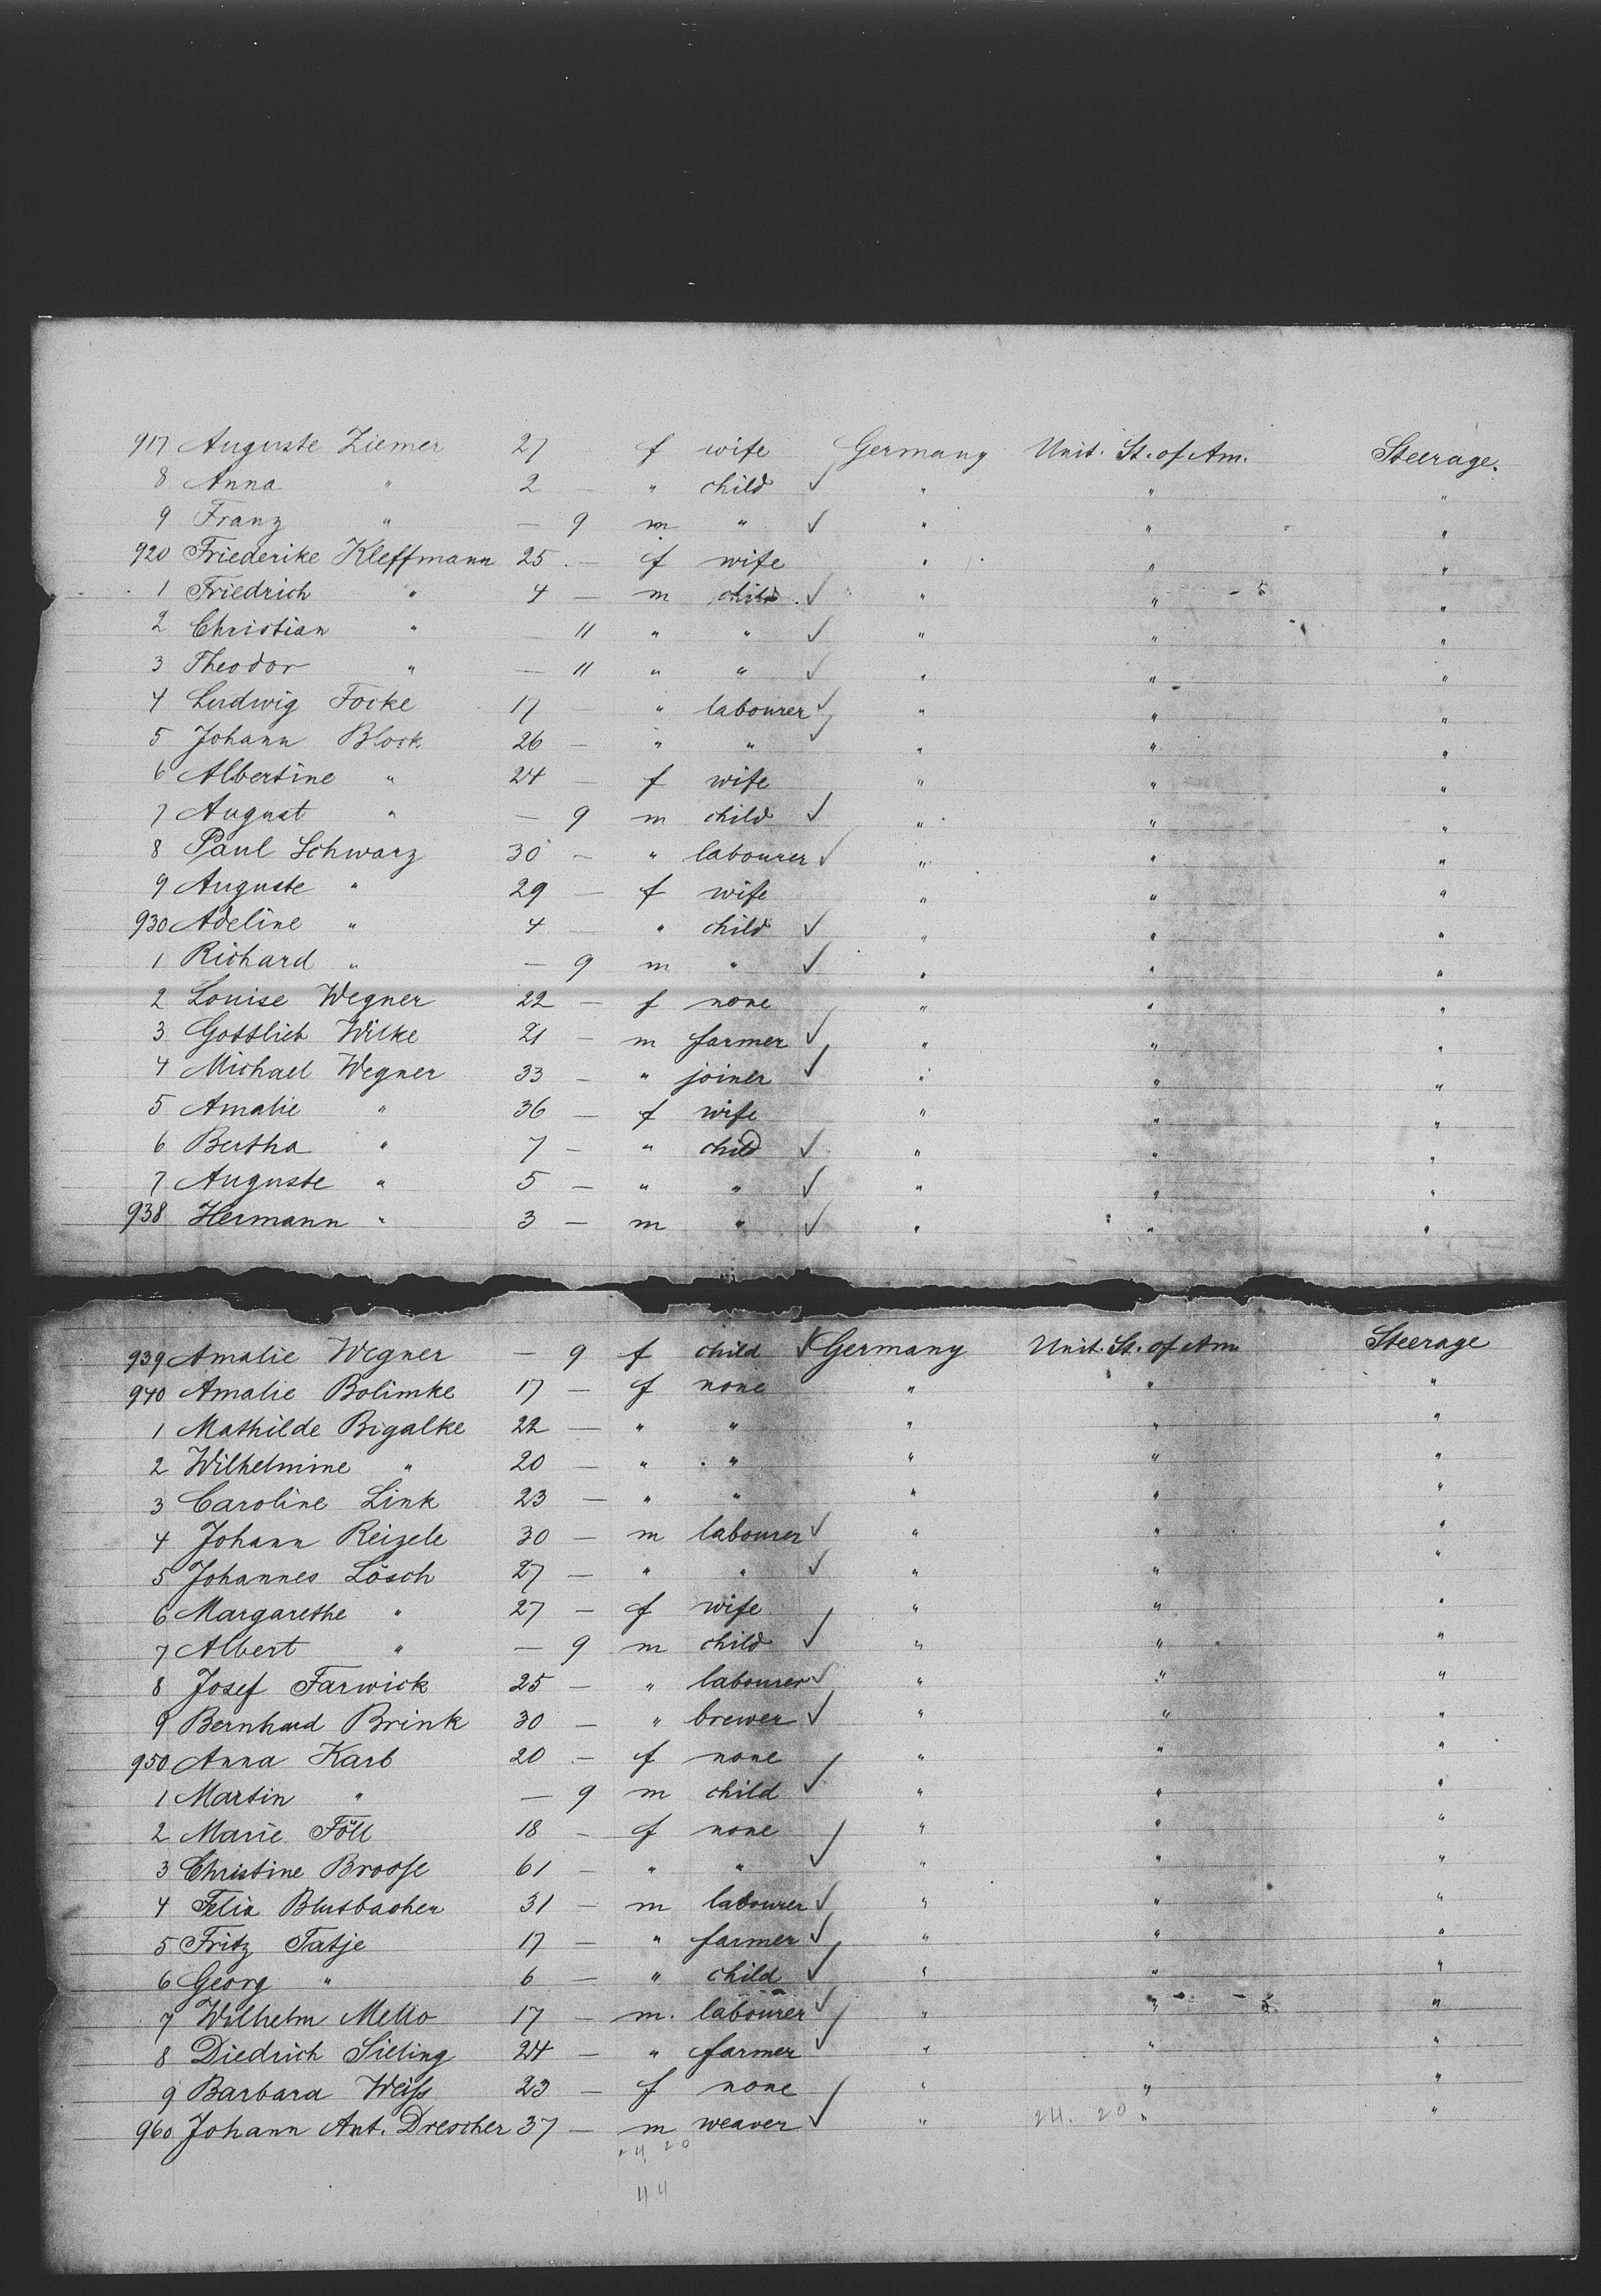 917 Auguste Ziemer 27 f wife Germany Unit. St. of Am. Steerage.
8 Anna " 2 — " child ✓ " " "
9 Franz " — 9 m " ✓ " " "
920 Friederike Kleffmann 25 — f wife " " "
1 Friedrich " 4 — m child ✓ " " "
2 Christian " — 11 " " ✓ " " "
3 Theodor " — 11 " " ✓ " " "
4 Ludwig Focke 17 — " labourer ✓ " " "
5 Johann Block 26 — " " ✓ " " "
6 Albertine " 24 — f wife " " "
7 August " — 9 m child ✓ " " "
8 Paul Schwarz 30 — " labourer ✓ " " "
9 Auguste " 29 — f wife " " "
930 Adeline " 4 — " child ✓ " " "
1 Richard " — 9 m " ✓ " " "
2 Louise Wegner 22 — f none " " "
3 Gottlieb Wilke 21 — m farmer ✓ " " "
4 Michael Wegner 33 — " joiner ✓ " " "
5 Amalie " 36 — f wife " " "
6 Bertha " 7 — " child ✓ " " "
7 Auguste " 5 — " " ✓ " " "
938 Hermann " 3 — m " ✓ " " "
939 Amalie Wegner — 9 f child ✓ Germany Unit. St. of Am Steerage
940 Amalie Bolimke 17 — f none " " "
1 Mathilde Bigalke 22 — " " " " "
2 Wilhelmine " 20 — " " " " "
3 Caroline Link 23 — " " " " "
4 Johann Reizele 30 — m labourer ✓ " " "
5 Johannes Lösch 27 — " " ✓ " " "
6 Margarethe " 27 — f wife " " "
7 Albert " — 9 m child ✓ " " "
8 Josef Farwick 25 — " labourer ✓ " " "
9 Bernhard Brink 30 — " brewer ✓ " " "
950 Anna Karb 20 — f none " " "
1 Martin " — 9 m child ✓ " " "
2 Marie Föll 18 — f none " " "
3 Christine Broose 61 — " " ✓ " " "
4 Felix Blutbacher 31 — m labourer ✓ " " "
5 Fritz Tatje 17 — " farmer ✓ " " "
6 Georg " 6 — " child ✓ " " "
7 Wilhelm Mello 17 — m. labourer ✓ " " "
8 Diedrich Sieling 24 — " farmer ✓ " " "
9 Barbara Weiſs 23 — f none " " "
960 Johann Ant. Drescher 37 — m weaver ✓ " 24. 20 " "
24 20
44